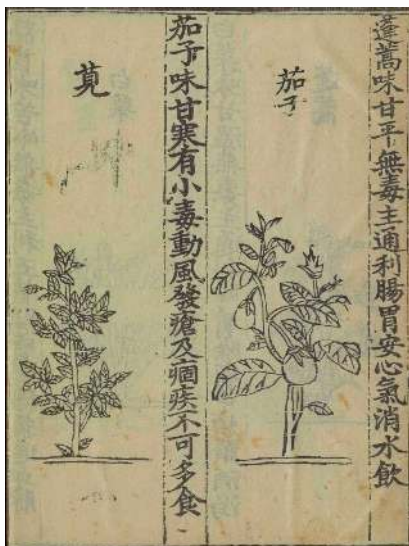 蓬蒿味甘平無毒主通利腸胃安心氣消水飲
茄子
茄子味甘寒有小毒動風發瘡及痼疾不可多食
莧